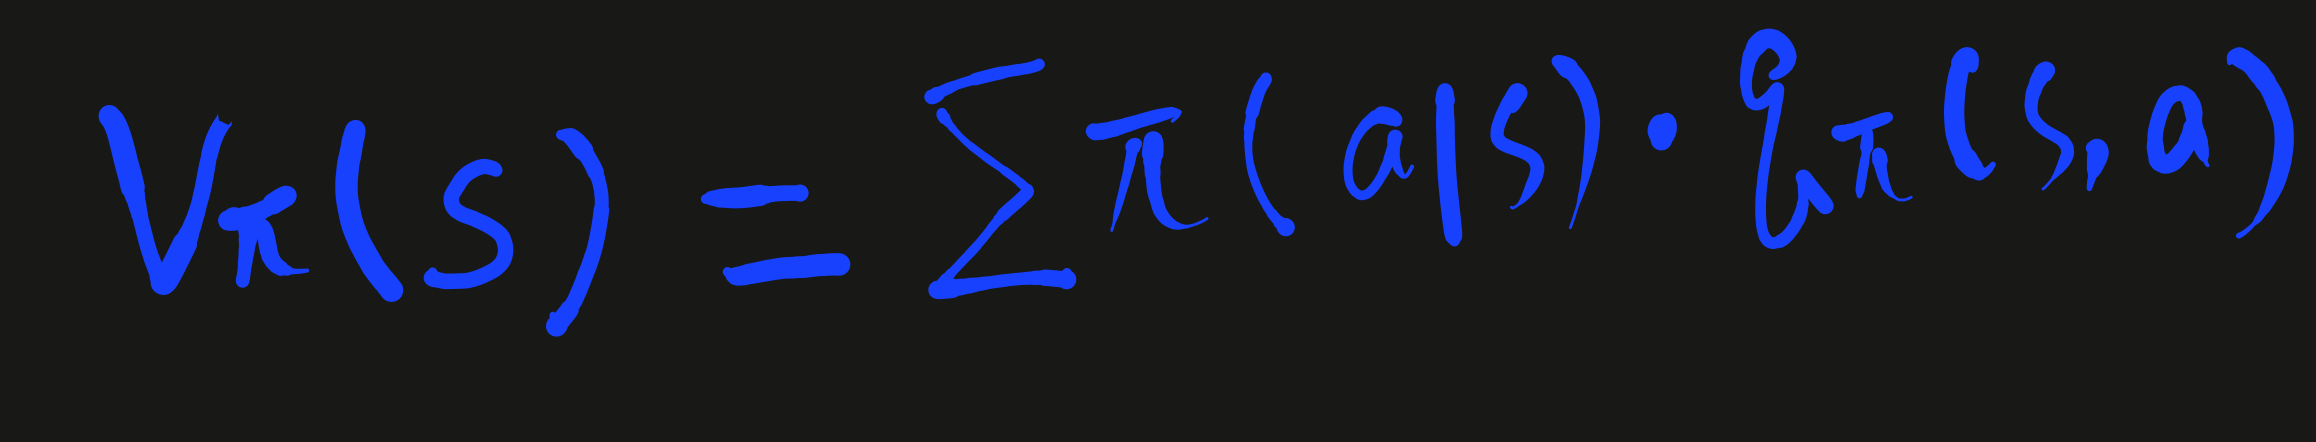 Vπ(s) = Σ π(a|s) · qπ(s,a)